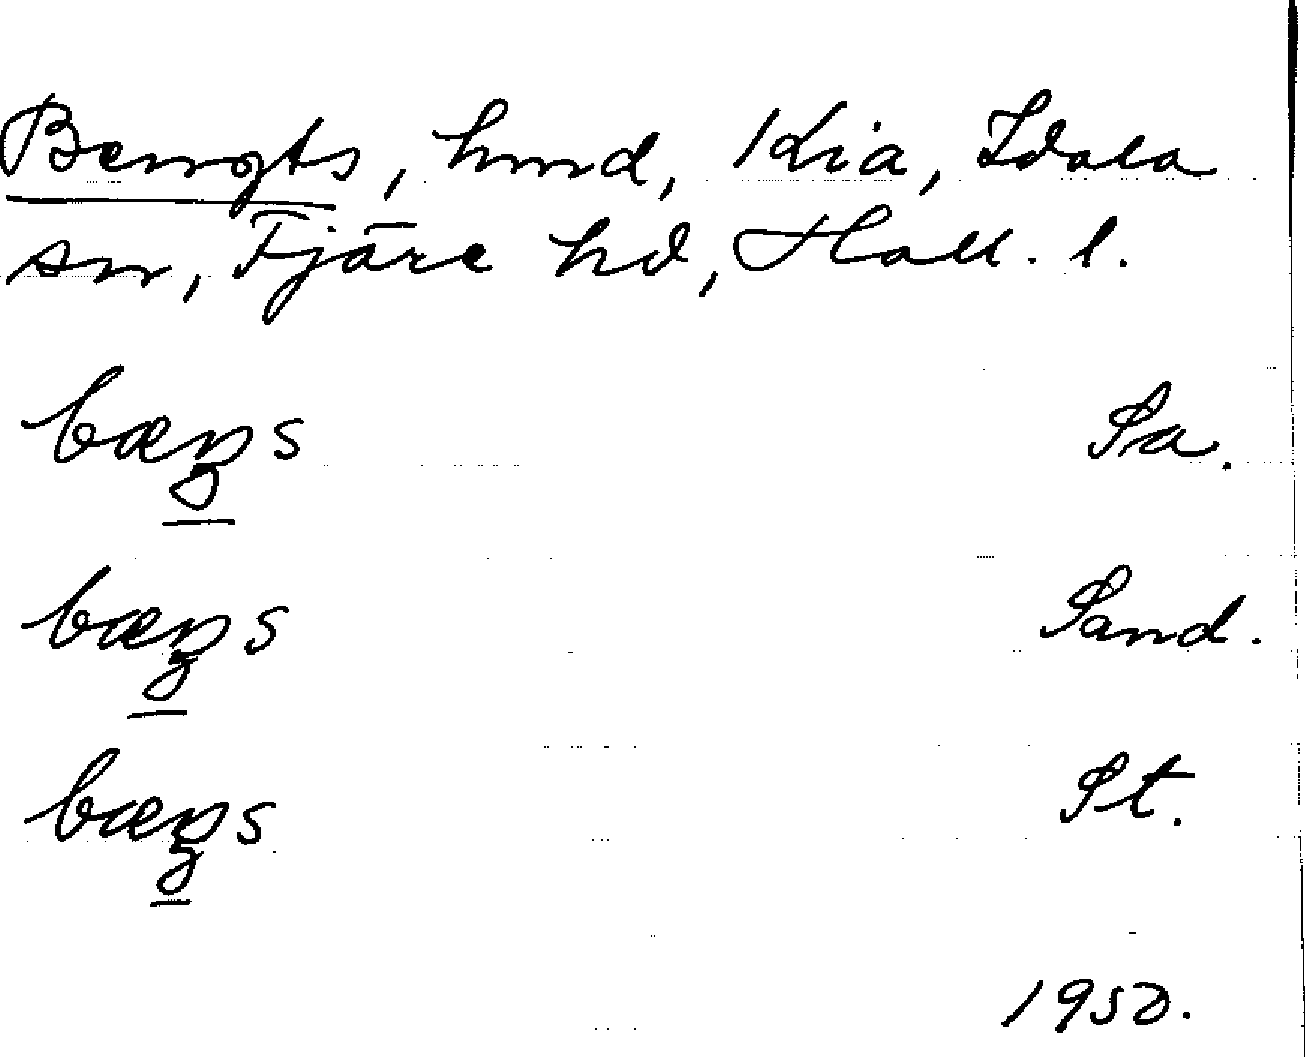 Bengts, hmd, Kia, Idala
sn, Fjäre hd, Hall. l.
bæŋs Sa.
bæŋs Sand.
bæŋs St.
1950.